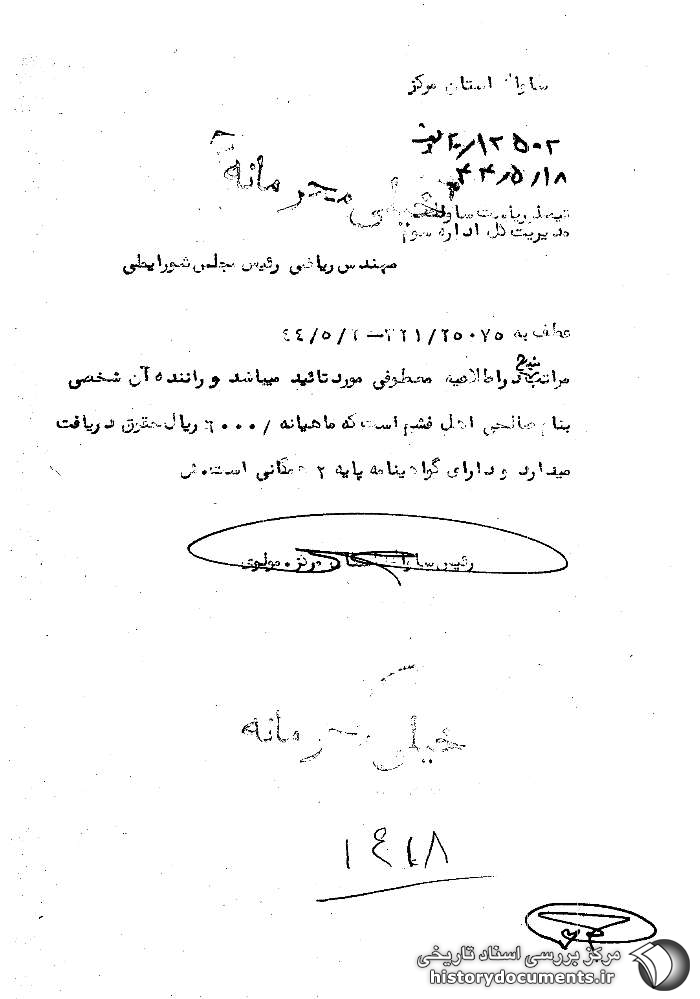 ساواک استان مرکز
۲۰/۱۲۵۰۲
۴۴/۵/۱۸
خیلی محرمانه
تیمسار ریاست ساواک
مدیریت کل اداره سوم
مهندس ریاضی رئیس مجلس شورایملی
عطف به ۳۲۱/۲۵۰۷۵-۴۴/۵/۲
مراتب مندرج در اطلاعیه معطوفی مورد تائید میباشد و راننده آن شخصی
بنام صالحی اهل فشم است که ماهیانه /۶۰۰۰ ریال حقوق دریافت
میدارد و دارای گواهینامه پایه ۲ همگانی است. ش
رئیس ساواک استان مرکز. مولوی
خیلی محرمانه
مرکز بررسی اسناد تاریخی
historydocuments.ir